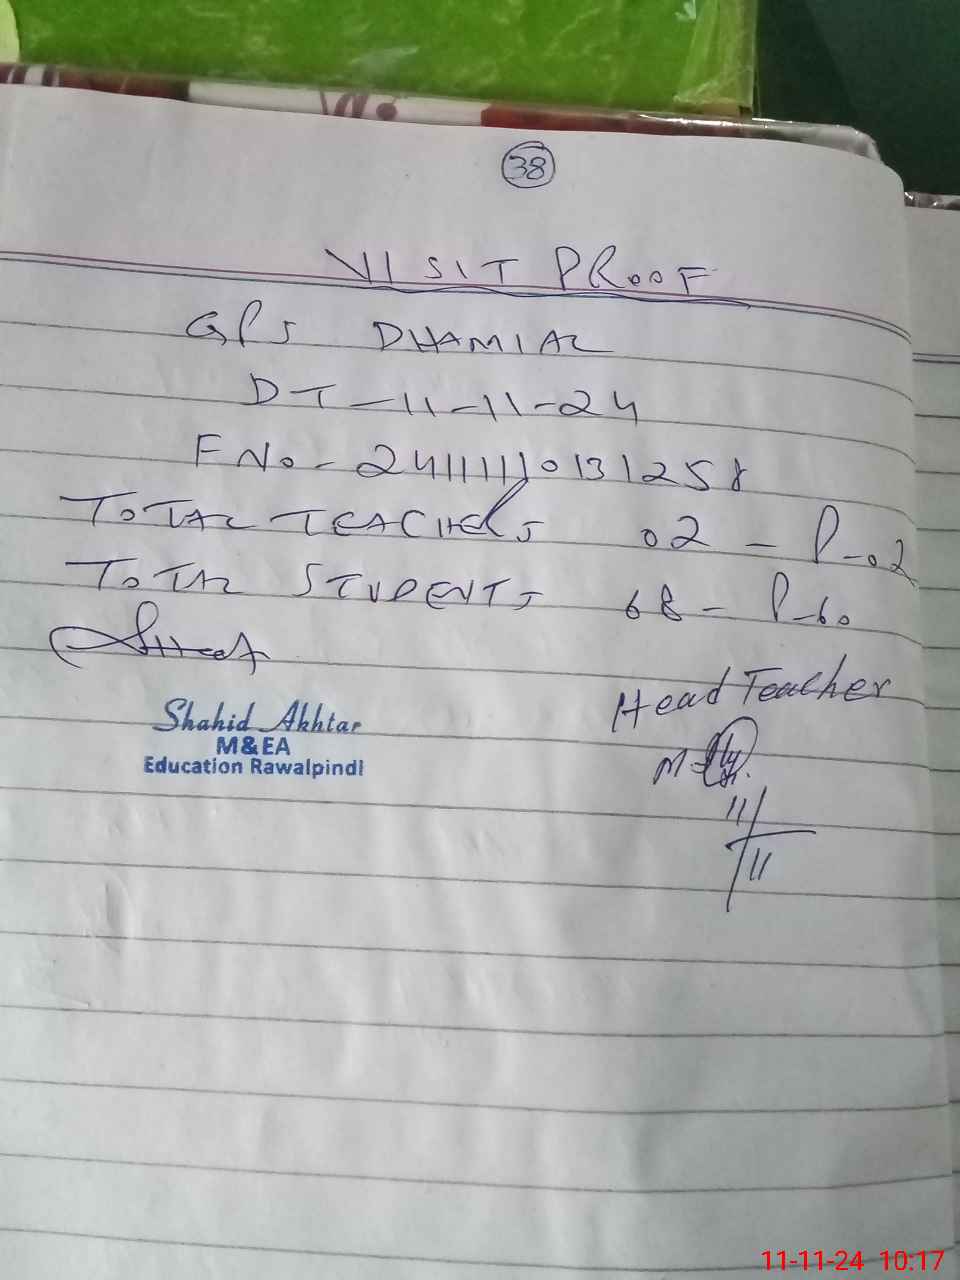 38
VISIT PROOF
GPS DHAMIAL
DT-11-11-24
F No - 24111110131258
TOTAL TEACHERS 02 - P-02
TOTAL STUDENTS 68 - P-60
Shahid Akhtar
M&EA
Education Rawalpindi
Head Teacher
11/11
11-11-24 10:17